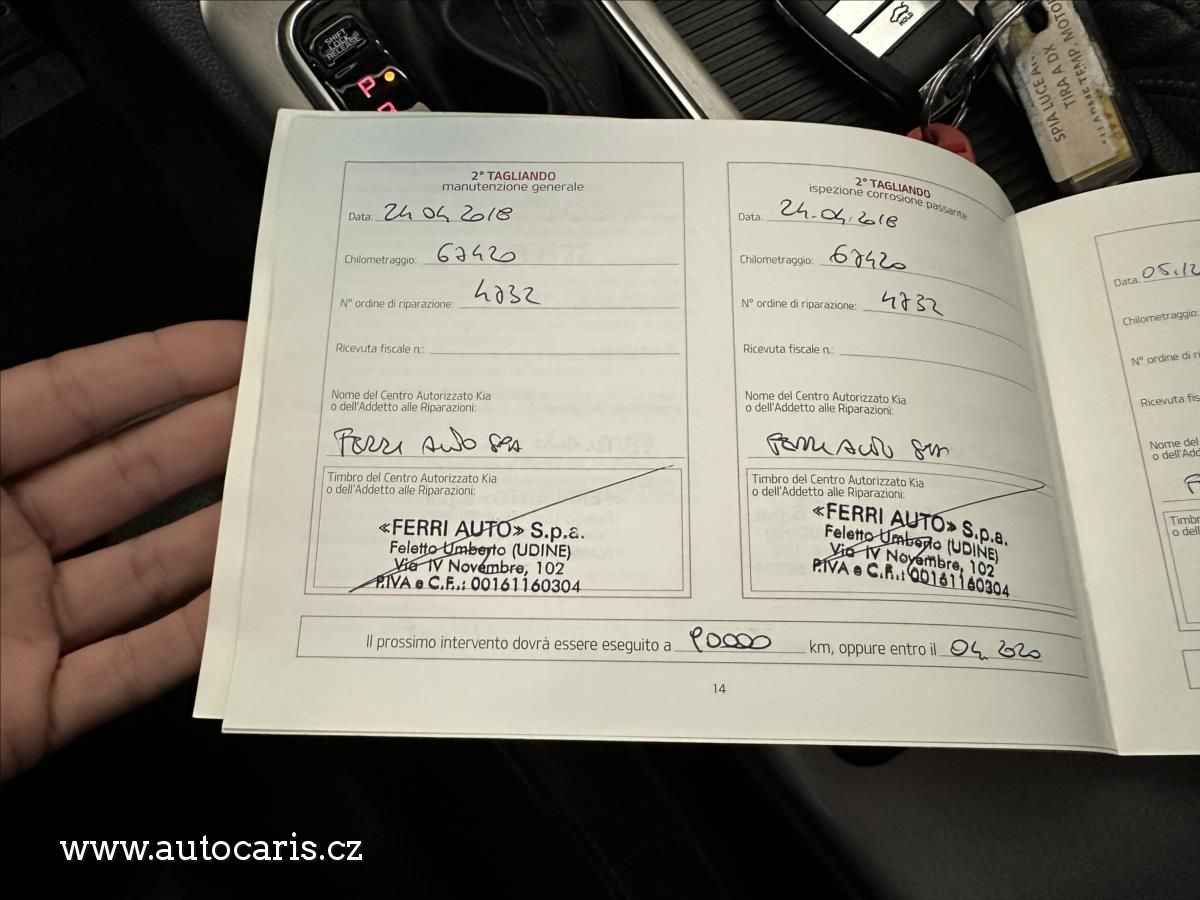 SHIFT
LOCK
RELEASE
P
R
HOLD
SPIA LUCE
TIRA A DX
TEMP. MOTO
2° TAGLIANDO
manutenzione generale
Data: 24 04 2018
Chilometraggio: 67420
N° ordine di riparazione: 4732
Ricevuta fiscale n.:
Nome del Centro Autorizzato Kia
o dell'Addetto alle Riparazioni:
FERRI AUTO SPA
Timbro del Centro Autorizzato Kia
o dell'Addetto alle Riparazioni:
«FERRI AUTO» S.p.a.
Feletto Umberto (UDINE)
Via IV Novembre, 102
P.IVA e C.F.: 00161160304
2° TAGLIANDO
ispezione corrosione passante
Data: 24.04.2018
Chilometraggio: 67420
N° ordine di riparazione: 4732
Ricevuta fiscale n.:
Nome del Centro Autorizzato Kia
o dell'Addetto alle Riparazioni:
FERRI AUTO SPA
Timbro del Centro Autorizzato Kia
o dell'Addetto alle Riparazioni:
«FERRI AUTO» S.p.a.
Feletto Umberto (UDINE)
Via IV Novembre, 102
P.IVA e C.F.: 00161160304
Il prossimo intervento dovrà essere eseguito a 90000 km, oppure entro il 04. 2020
14
Data: 05.12
Chilometraggio:
N° ordine di ri
Ricevuta fis
Nome del
o dell'Add
F
Timbro
o dell
www.autocaris.cz